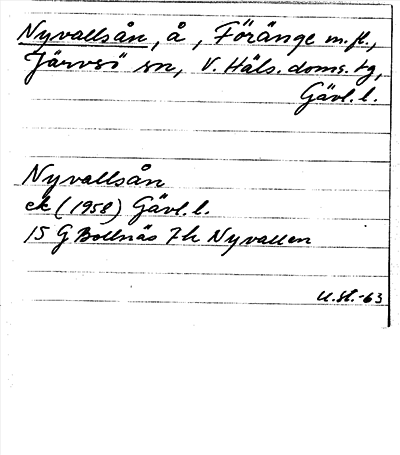 Nyvallsån, å, Föränge m.fl.,
Järvsö sn, V. Häls. doms. tg,
Gävl. l.
Nyvallsån
ek (1958) Gävl. l.
15 G Bollnäs 7h Nyvallen
U.st.-63